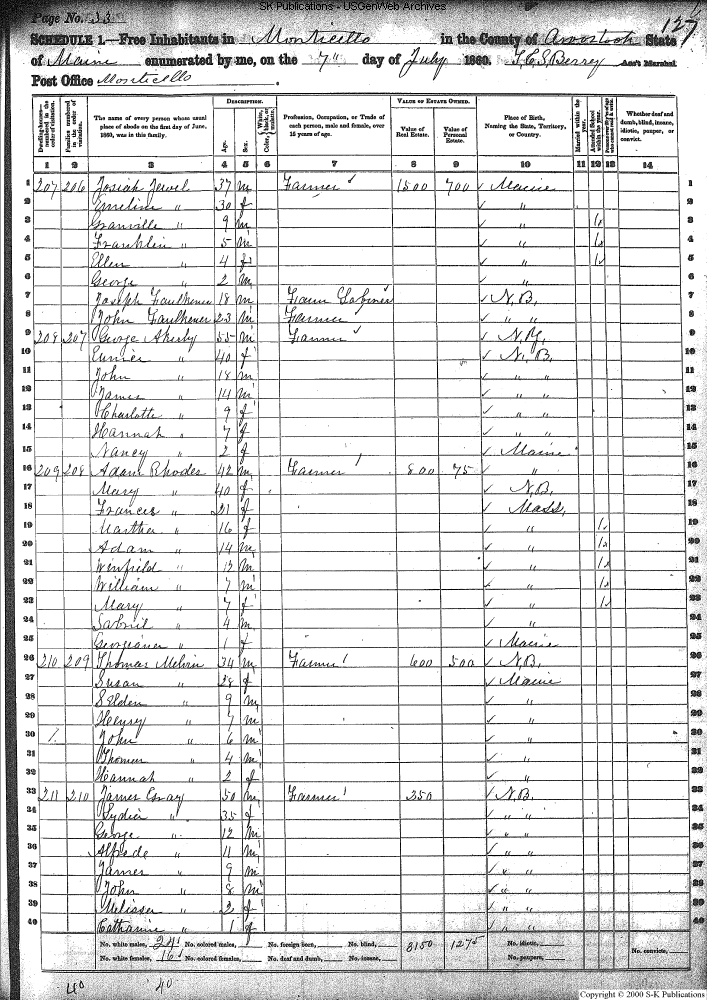 SK Publications - USGenWeb Archives
Page No. 33
127
SCHEDULE 1.—Free Inhabitants in Monticello in the County of Aroostook State
of Maine enumerated by me, on the 7" day of July 1860. T.C.S. Berrey Ass't Marshal
Post Office Monticello.
Dwelling-houses—numbered in the order of visitation.
Families numbered in the order of visitation.
The name of every person whose usual place of abode on the first day of June, 1860, was in this family.
DESCRIPTION.
Age.
Sex.
Color, White, black, or mulatto.
Profession, Occupation, or Trade of each person, male and female, over 15 years of age.
VALUE OF ESTATE OWNED.
Value of Real Estate.
Value of Personal Estate.
Place of Birth, Naming the State, Territory, or Country.
Married within the year.
Attended School within the year.
Whether deaf and dumb, blind, insane, idiotic, pauper, or convict.
1 2 3 4 5 6 7 8 9 10 11 12 13 14
1 207 206 Josiah Jewel 37 m Farmer 1500 700 ✓ Maine 1
2 Emeline " 30 f ✓ " 2
3 Granville " 9 m ✓ " 1 3
4 Franklin " 5 m ✓ " 1 4
5 Ellen " 4 f ✓ " 1 5
6 George " 2 m ✓ " 6
7 Joseph Faulkener 18 m Farm Laborer ✓ N.B. 7
8 John Faulkener 23 m Farmer ✓ " " 8
9 208 207 George Akerly 55 m Farmer ✓ N.Y. 9
10 Eunice " 40 f ✓ N.B. 10
11 John " 18 m ✓ " " 11
12 James " 14 m ✓ " " 12
13 Charlotte " 9 f ✓ " " 13
14 Hannah " 7 f ✓ " " 14
15 Nancy " 2 f ✓ Maine 15
16 209 208 Adam Rhodes 42 m Farmer 800 75 ✓ " 16
17 Mary " 40 f ✓ N.B. 17
18 Frances " 21 f ✓ Mass. 18
19 Martha " 16 f ✓ " 1 19
20 Adam " 14 m ✓ " 1 20
21 Winfield " 13 m ✓ " 1 21
22 William " 7 m ✓ " 1 22
23 Mary " 7 f ✓ " 1 23
24 " 4 m ✓ " 24
25 Georgianna " 1 f ✓ Maine 25
26 210 209 Thomas Melvin 34 m Farmer 600 500 ✓ N.B. 26
27 Susan " 28 f ✓ Maine 27
28 Selden " 9 m ✓ " 28
29 Henry " 7 m ✓ " 29
30 1. John " 6 m ✓ " 30
31 Thomas " 4 m ✓ " 31
32 Hannah " 2 f ✓ " 32
33 211 210 James 50 m Farmer 350 ✓ N.B. 33
34 Lydia " 35 f ✓ " " 34
35 George " 12 m ✓ " " 35
36 " 11 m ✓ " " 36
37 James " 9 m ✓ " " 37
38 John " 8 m ✓ " " 38
39 Melissa " 2 f ✓ " " 39
40 Catharine " 1 f ✓ " " 40
No. white males, 24 No. colored males, No. foreign born, No. blind, 3150 1275 No. idiotic, No. convicts,
No. white females, 16 No. colored females, No. deaf and dumb, No. insane, No. paupers,
40 40
Copyright © 2000 S-K Publications